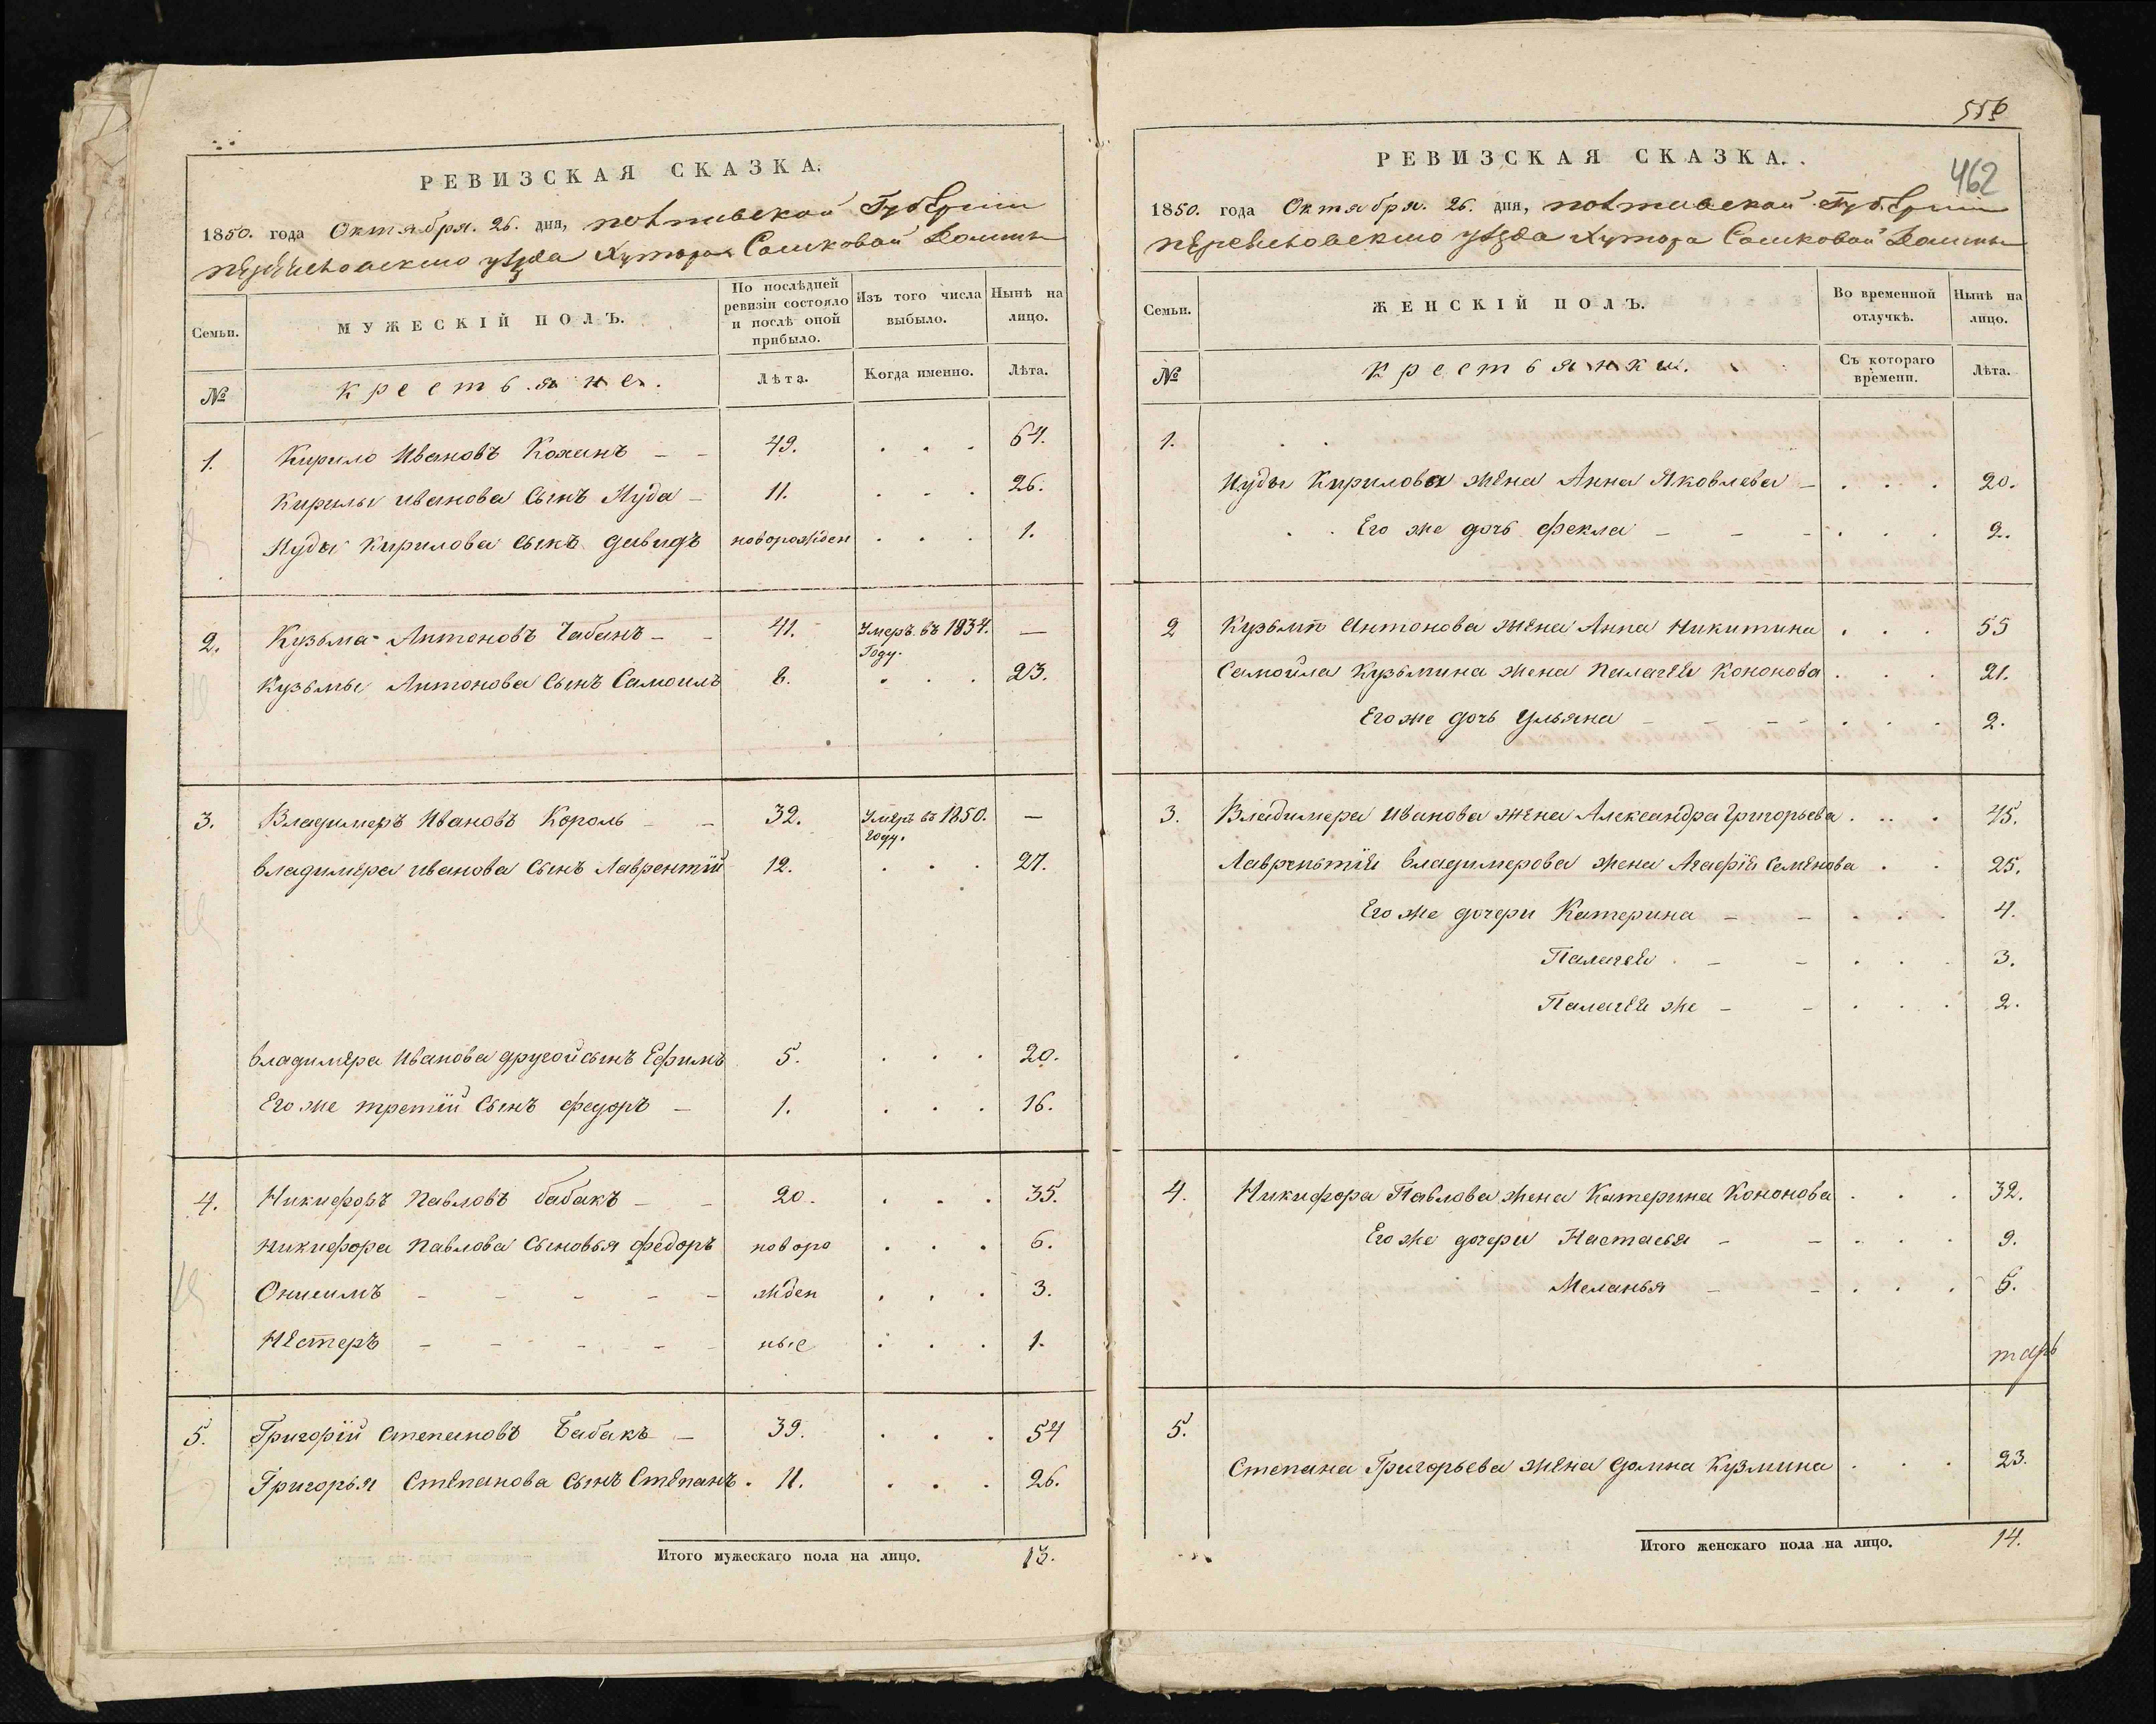 РЕВИЗСКАЯ СКАЗКА.
1850. года Октября. 26. дня, полтавской Губерніи
уѣзда Хутора Сошковой Долины
Семьи.
МУЖЕСКІЙ ПОЛЪ.
По послѣдней ревизіи состояло и послѣ оной прибыло.
Изъ того числа выбыло.
Нынѣ на лицо.
№
крестьяне.
Лѣта.
Когда именно.
Лѣта.
1. Кирило Ивановъ Кожанъ - - 49. . . . 64.
Кирилы иванова Сынъ Иуда - 11. . . . 26.
Иуды Кирилова сынъ давидъ новорожден . . . 1.
2. Кузьма Антоновъ Чабанъ - - 41. Умеръ въ 1834. Году. —
Кузьмы Антонова Сынъ Самоилъ 8. . . . 23.
3. Владимеръ Ивановъ Король - - 32. Умеръ въ 1850. году. —
владимера иванова Сынъ Лаврентій 12. . . . 27.
владимера Иванова другой сынъ Ефимъ 5. . . . 20.
Его же третій Сынъ федоръ - 1. . . . 16.
4. Никифоръ Павловъ бабакъ - - 20. . . . 35.
никифора Павлова Сыновья федоръ новоро . . . 6.
Онисимъ - - - - - жден . . . 3.
Нестеръ - - - - - ные . . . 1.
5. Григорій Степановъ Бабакъ - 39. . . . 54
Григорья Степанова Сынъ Степанъ. 11. . . . 26.
Итого мужескаго пола на лицо. 13.
556
462
РЕВИЗСКАЯ СКАЗКА.
1850. года Октября. 26. дня, полтавской Губерніи
уѣзда Хутора Сошковой Долины
Семьи.
ЖЕНСКІЙ ПОЛЪ.
Во временной отлучкѣ.
Нынѣ на лицо.
№
крестьянки.
Съ котораго времени.
Лѣта.
1. . .
Иуды Кирилова жена Анна Яковлева - . . . 20.
. . Его же дочь Фекла - - - . . . 2.
2 Кузьмы Антонова жена Анна Никитина . . . 55
Самойла Кузьмина жена Палагея Кононова . . . 21.
Его же дочь Ульяна - - - - . . . 2.
3. Владимера Иванова жена Александра Григорьева . . . 45.
Лаврентія владимерова жена Агафія Семенова . . 25.
Его же дочери Катерина - - . . . 4.
Палагея - - . . . 3.
Палагея же - - . . . 2.
4. Никифора Павлова жена Катерина Кононова . . . 32.
Его же дочери Настасья - - . . . 9.
Меланья - - . . . 5.
5.
Степана Григорьева жена домна Кузмина . . . 23.
Итого женскаго пола на лицо. 14.